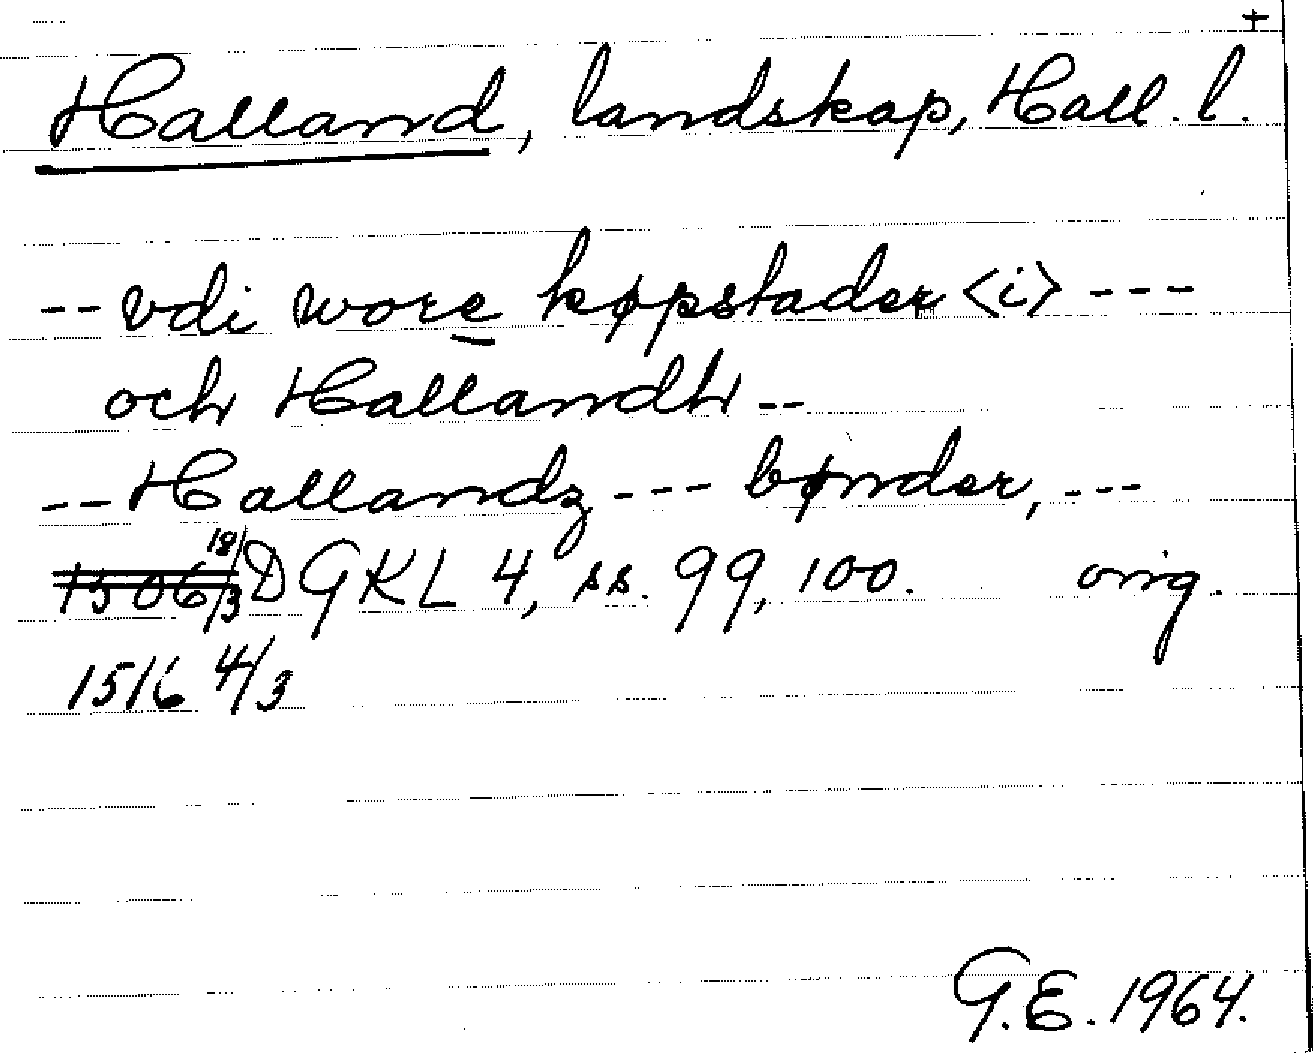 +
Halland, landskap, Hall. l.
-- vdi wore køpstader <i> ---
och Hallandh --
-- Hallandz --- bønder, ---
1506 18/3 DGKL 4, ss. 99, 100. orig.
1516 4/3
G.E. 1964.